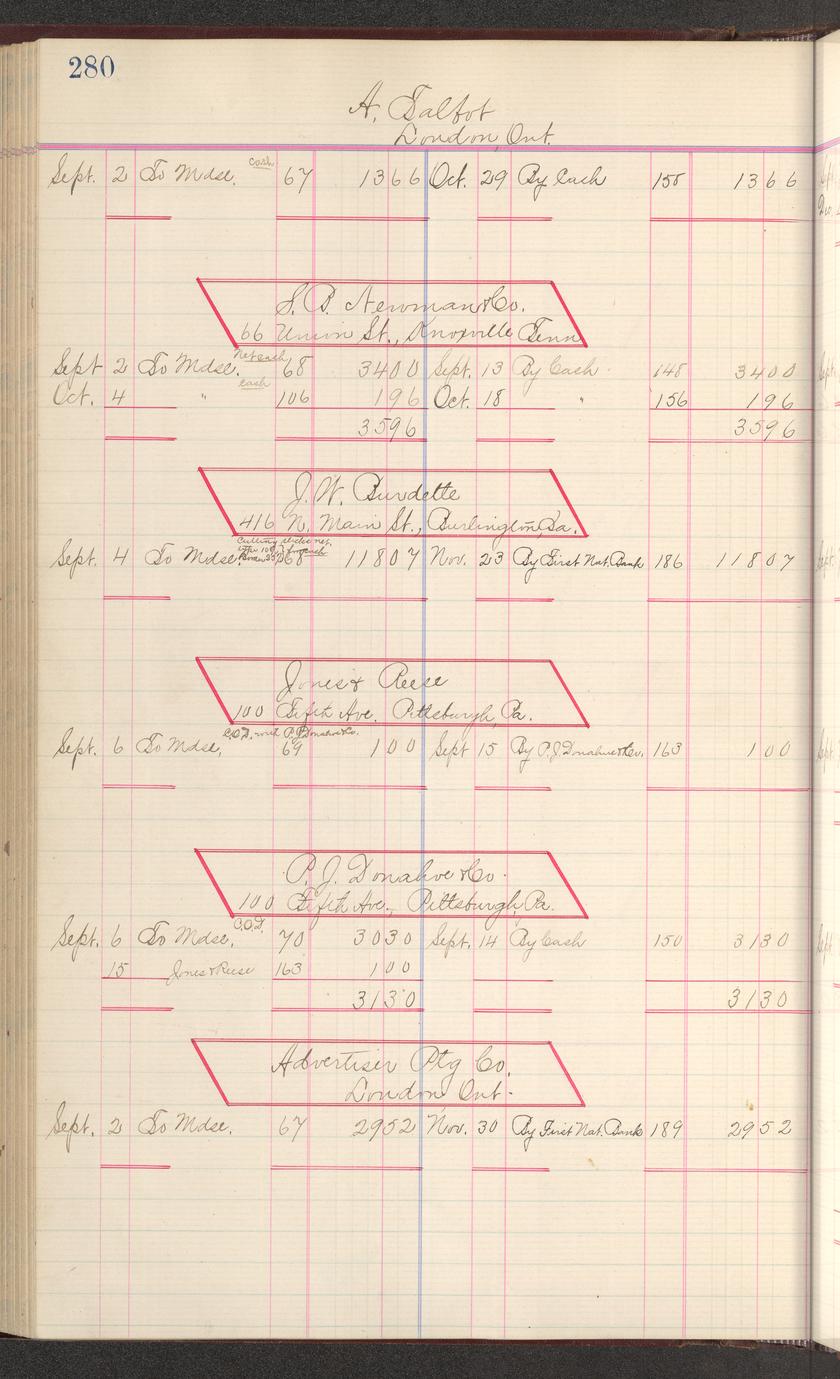 280
A. Talbot
London, Ont.
cash
Sept. 2 To Mdse. 67 1366 Oct. 29 By Cash 155 1366
S. B. Newman & Co.
66 Union St., Knoxville Tenn
Net cash
Sept 2 To Mdse. 68 3400 Sept. 13 By Cash 148 3400
cash
Oct. 4 " 106 196 Oct. 18 " 156 196
3596 3596
J. W. Burdette
416 N. Main St., Burlington, Ia.
net.
Sept. 4 To Mdse. 68 11807 Nov. 23 By First Nat. Bank 186 11807
Jones & Reese
100 Fifth Ave. Pittsburgh, Pa.
C.O.D. with P. J. Donahoe & Co.
Sept. 6 To Mdse, 69 100 Sept 15 By P. J. Donahoe & Co. 163 100
P. J. Donahoe & Co.
100 Fifth Ave., Pittsburgh, Pa.
C.O.D.
Sept. 6 To Mdse, 70 3030 Sept. 14 By Cash 150 3130
15 Jones & Reese 163 100
3130 3130
Advertiser Ptg Co.
London Ont.
Sept. 2 To Mdse. 67 2952 Nov. 30 By First Nat. Bank 189 2952